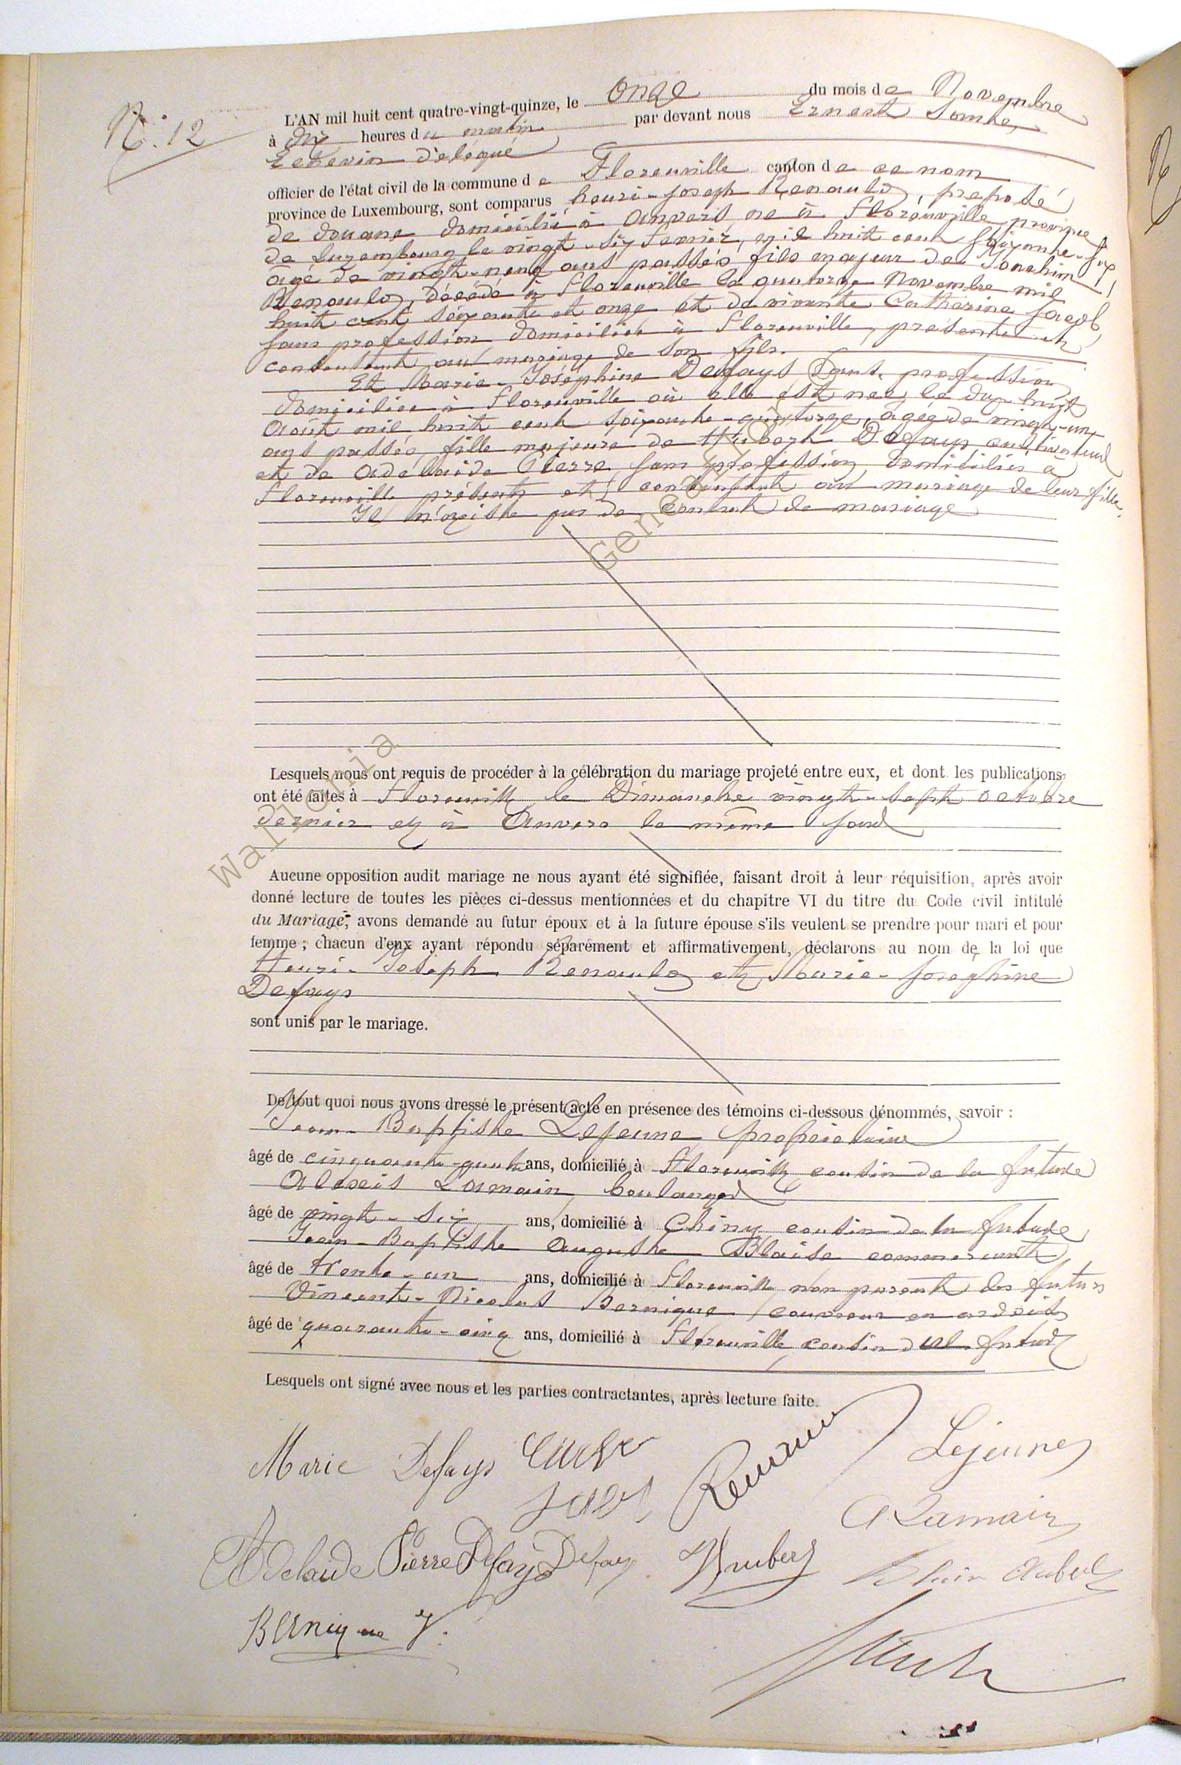 N°. 12
L'AN mil huit cent quatre-vingt-quinze, le onze du mois de Novembre
à dix heures du matin par devant nous Ernest
Echevin délégué
officier de l'état civil de la commune de Florenville canton de ce nom
province de Luxembourg, sont comparus henri-joseph Renauld, préposé
de douane domicilié à Anvers né à Florenville province
de Luxembourg le vingt-six février mil huit cent soixante-six,
âgé de vingt-neuf ans passés fils majeur de Joachim
Renauld, Décédé à Florenville le quatorze Novembre mil
huit cent soixante et onze et de vivante Catherine jacob,
sans profession domiciliée à Florenville, présente et
consentant au mariage de son fils.
Et Marie-Joséphine Defays sans profession
domiciliée à Florenville où elle est née le dix huit
Août mil huit cent soixante-quatorze, âgée de vingt-un
ans passés, fille majeure de Hubert Defays cultivateur
et de Adélaïde Pierre sans profession domiciliés à
Florenville présents et consentant au mariage de leur fille.
Il n'existe pas de contrat de mariage
Lesquels nous ont requis de procéder à la célébration du mariage projeté entre eux, et dont les publications
ont été faites à Florenville le Dimanche vingt-sept octobre
dernier et à Anvers le même jour
Aucune opposition audit mariage ne nous ayant été signifiée, faisant droit à leur réquisition, après avoir
donné lecture de toutes les pièces ci-dessus mentionnées et du chapitre VI du titre du Code civil intitulé
du Mariage, avons demandé au futur époux et à la future épouse s'ils veulent se prendre pour mari et pour
femme ; chacun d'eux ayant répondu séparément et affirmativement, déclarons au nom de la loi que
Henri-Joseph Renauld et Marie-Joséphine
Defays
sont unis par le mariage.
De tout quoi nous avons dressé le présent acte en présence des témoins ci-dessous dénommés, savoir :
Jean-Baptiste Lejeune propriétaire
âgé de cinquante-quatre ans, domicilié à Florenville cousin de la future
Alexis Lamain, boulanger
âgé de vingt-six ans, domicilié à Chiny cousin de la future
Jean-Baptiste Auguste Blaise commerçant
âgé de trente-un ans, domicilié à Florenville non parent des futurs
Vincent-Nicolas Bernique, couvreur en ardoises
âgé de quarante-cinq ans, domicilié à Florenville cousin du futur
Lesquels ont signé avec nous et les parties contractantes, après lecture faite.
Marie Defays
Renauld
Lejeune
A Lamain
Adelaide Pierre Defays Defays
Hubert
Bernique V.
Wallonia Genealogie